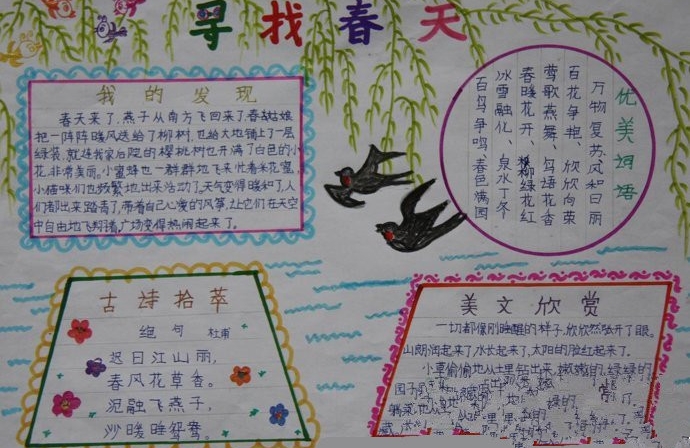 寻找春天
我的发现
春天来了,燕子从南方飞回来了,春姑娘
把一阵阵暖风送给了柳树,也给大地铺上了一层
绿装,就连我家后院的樱桃树也开满了白色的小
花,非常美丽。小蜜蜂也一群群地飞来忙着采花蜜,
小猫咪们也频繁地出来活动了,天气变得暖和了,人
们都出来踏青了,带着自己心爱的风筝,让它们在天空
中自由地飞翔着,广场变得热闹起来了。
优美词语
万物复苏、风和日丽
百花争艳、欣欣向荣
莺歌燕舞、鸟语花香
春暖花开、柳绿花红
冰雪融化、泉水丁冬
百鸟争鸣、春色满园
古诗拾萃
绝句 杜甫
迟日江山丽,
春风花草香。
泥融飞燕子,
沙暖睡鸳鸯。
美文欣赏
一切都像刚睡醒的样子,欣欣然张开了眼。
山朗润起来了,水长起来了,太阳的脸红起来了。
小草偷偷地从土里钻出来,嫩嫩的,绿绿的
园子